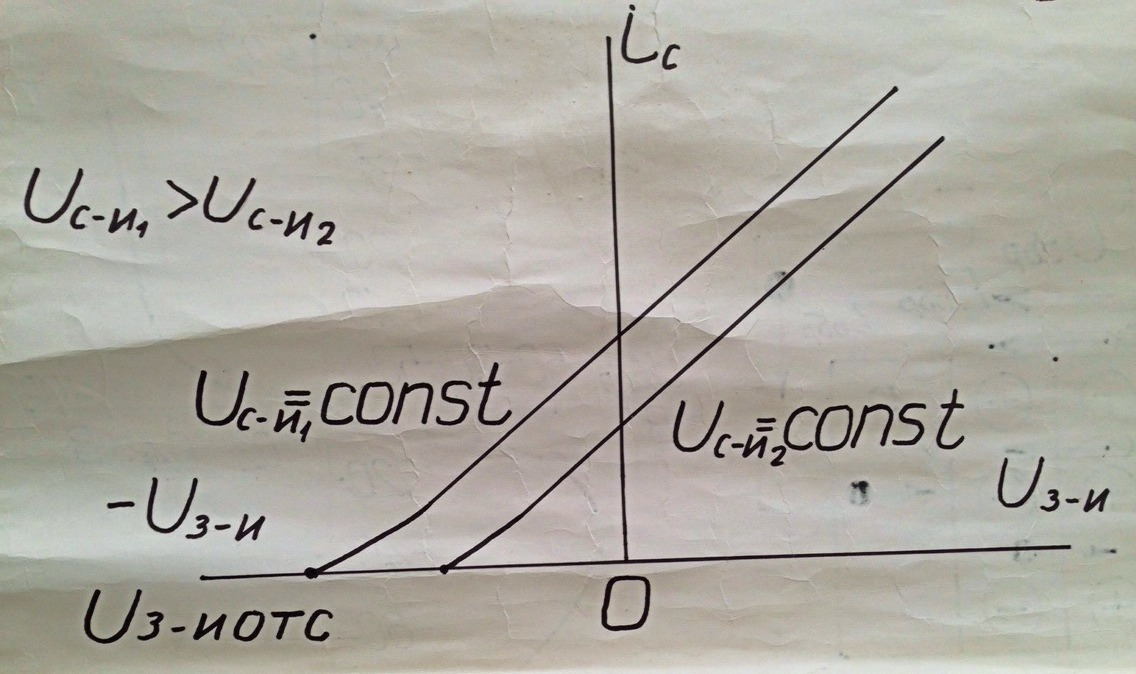 iс
Uс-и₁ > Uс-и₂
Uс-и₁ = const
Uс-и₂ = const
-Uз-и
Uз-и
Uз-и отс
0